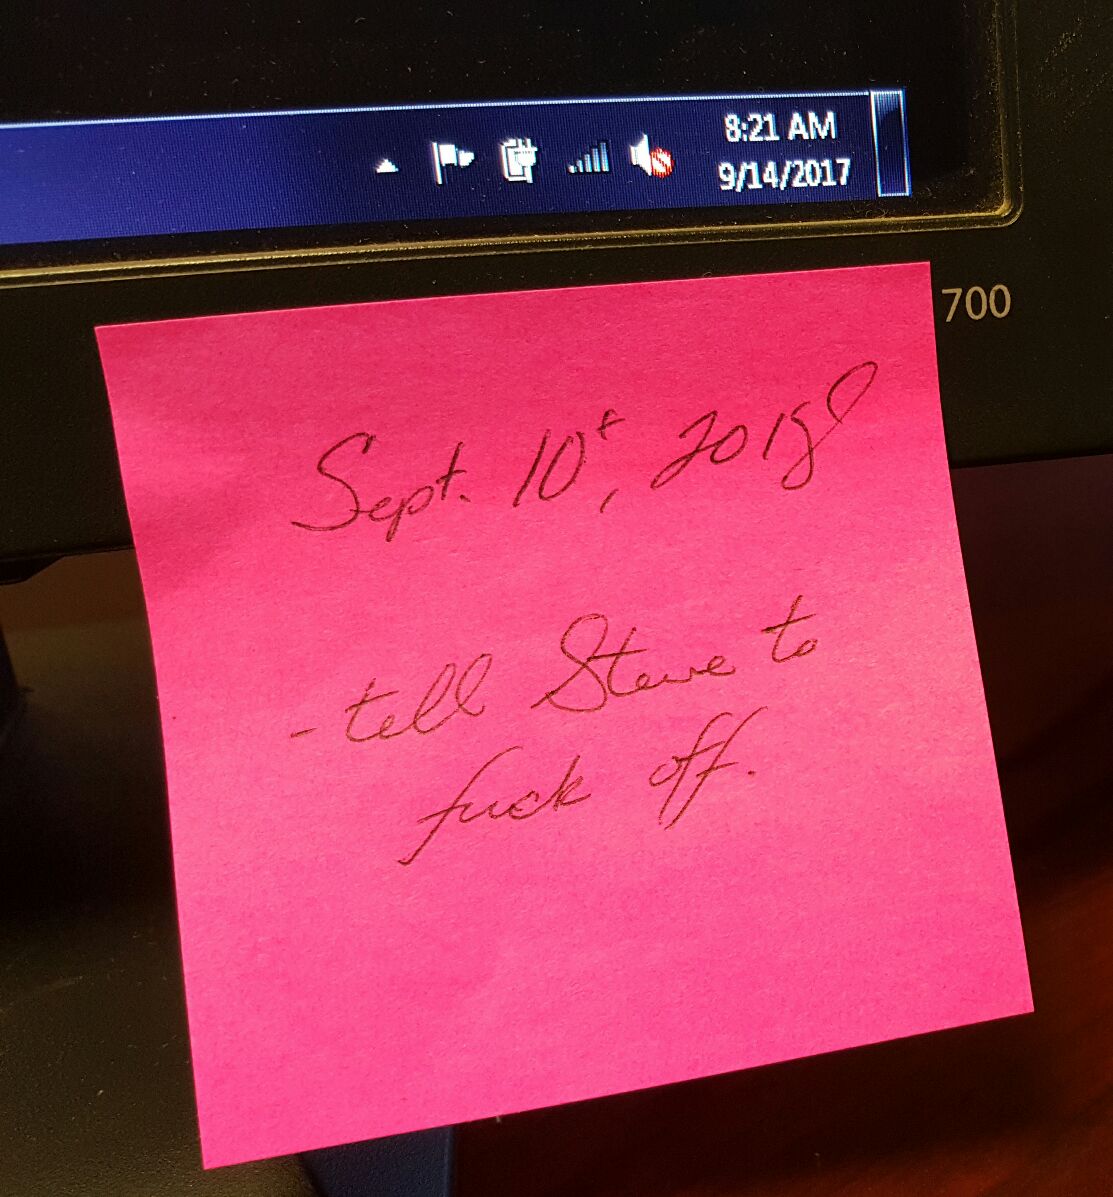 8:21 AM
9/14/2017
700
Sept. 10t, 2018
- tell Steve to
fuck off.